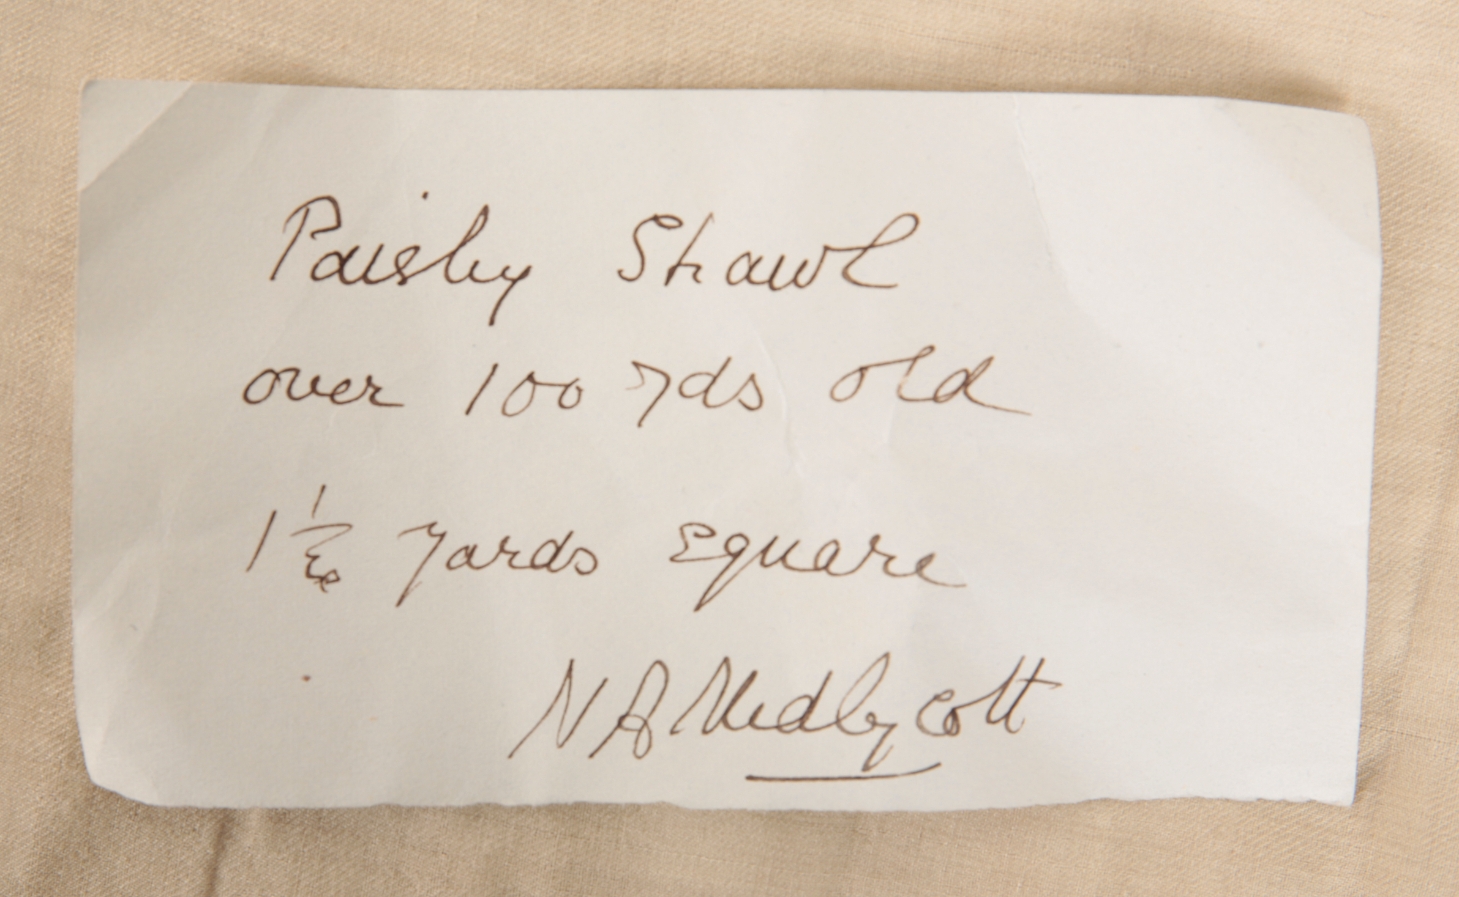 Paisley Shawl
over 100 yds old
1½ yards square
N A Medlycott